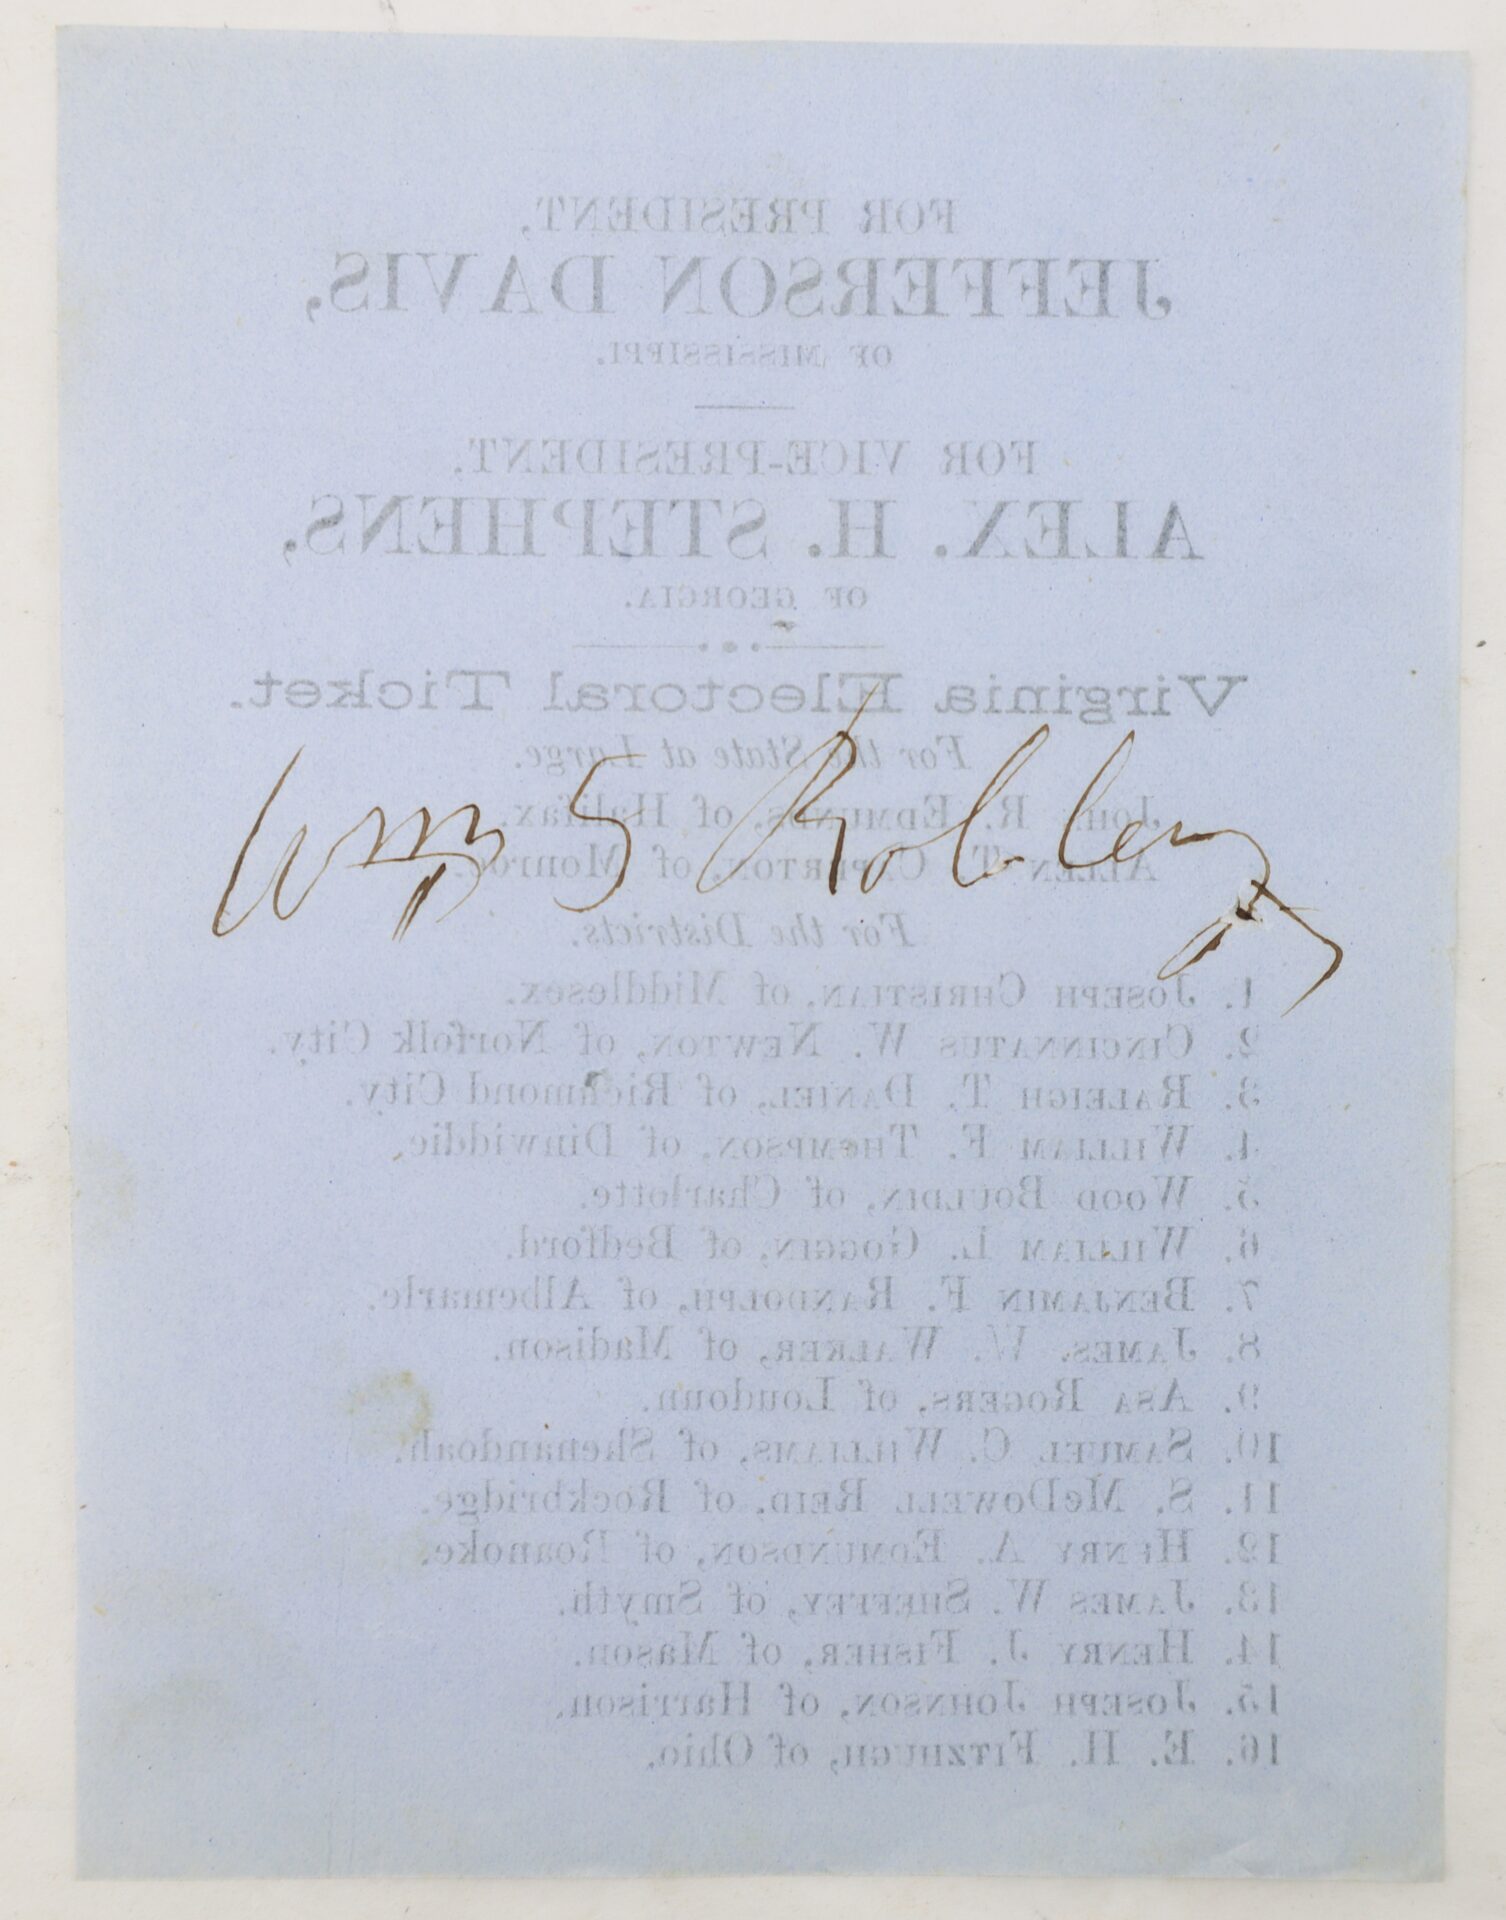 FOR PRESIDENT,
JEFFERSON DAVIS,
OF MISSISSIPPI.
FOR VICE-PRESIDENT.
ALEX. H. STEPHENS,
OF GEORGIA.
Virginia Electoral Ticket.
For the State at Large.
Wm S
JOHN R. EDMUNDS, of Halifax.
ALLEN T. CAPERTON, of Monroe.
For the Districts.
1. JOSEPH CHRISTIAN, of Middlesex.
2. CINCINNATUS W. NEWTON, of Norfolk City.
3. RALEIGH T. DANIEL, of Richmond City.
4. WILLIAM F. THOMPSON, of Dinwiddie.
5. WOOD BOULDIN, of Charlotte.
6. WILLIAM L. GOGGIN, of Bedford.
7. BENJAMIN F. RANDOLPH, of Albemarle.
8. JAMES. W. WALKER, of Madison.
9. ASA ROGERS, of Loudoun.
10. SAMUEL C. WILLIAMS, of Shenandoah.
11. S. McDOWELL REID, of Rockbridge.
12. HENRY A. EDMUNDSON, of Roanoke.
13. JAMES W. SHEFFEY, of Smyth.
14. HENRY J. FISHER, of Mason.
15. JOSEPH JOHNSON, of Harrison.
16. E. H. FITZHUGH, of Ohio.